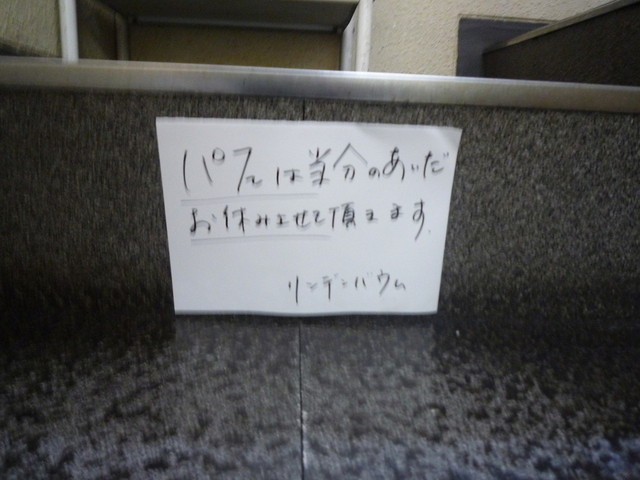 パフェは当分のあいだ
お休みさせて頂きます。
リンデンバウム